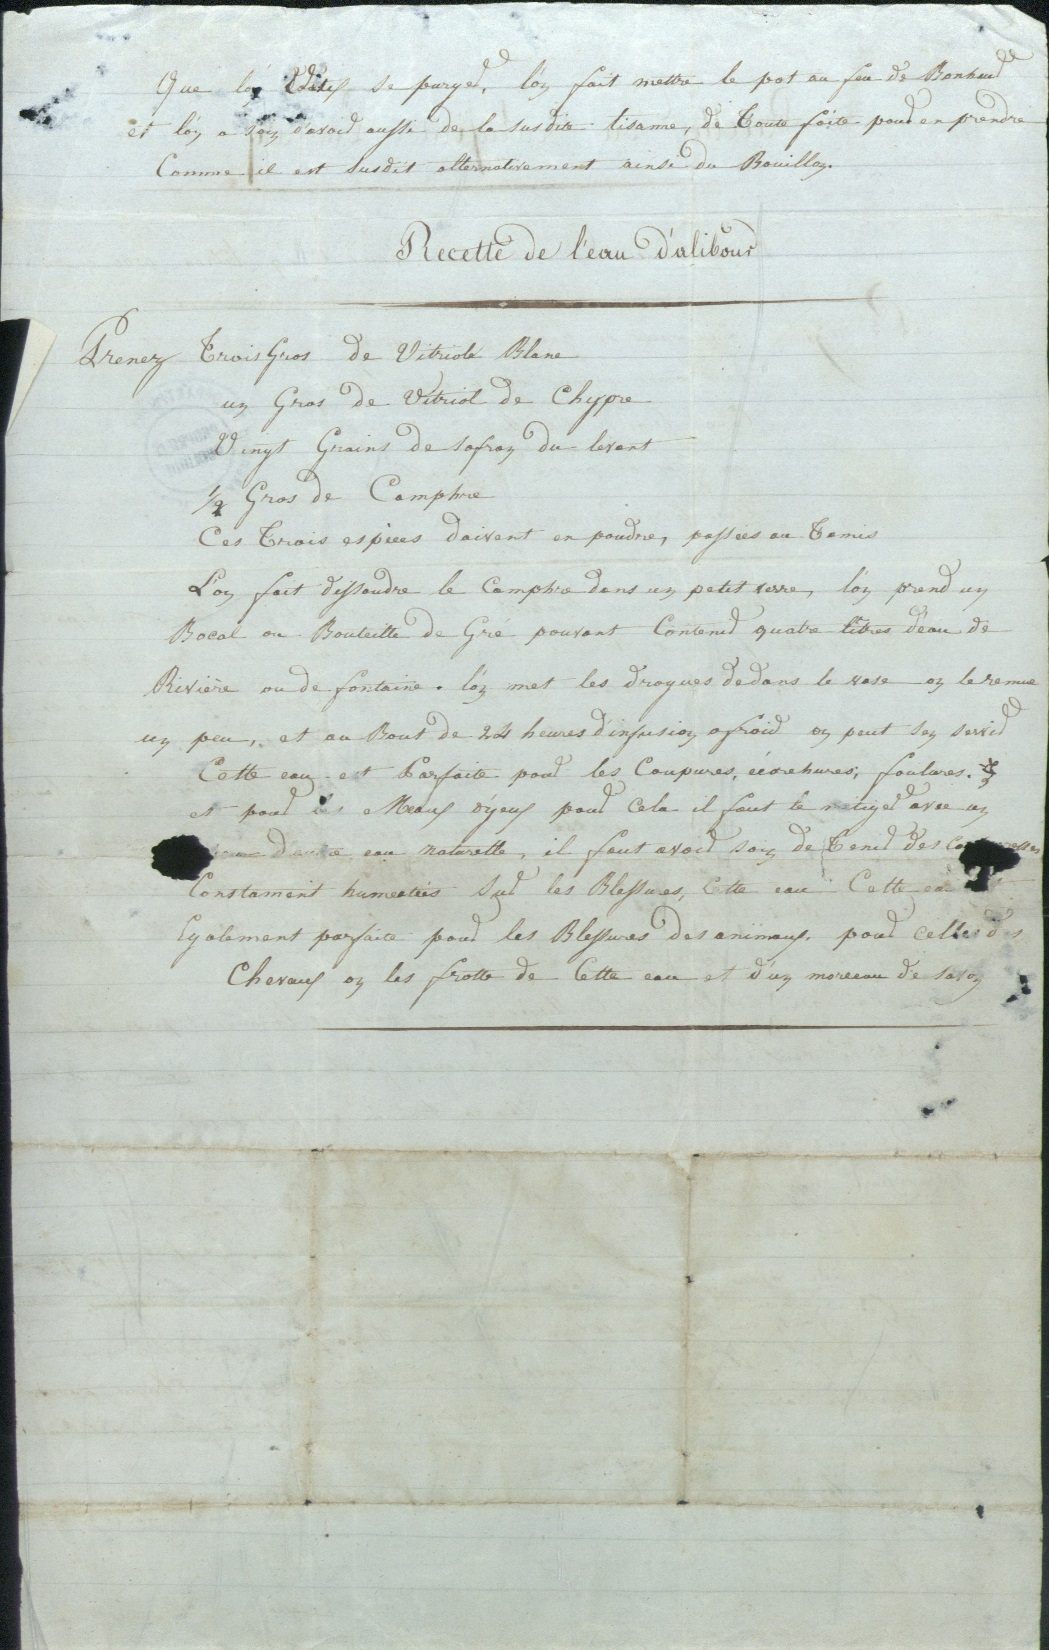 Que l'on se purger, l'on fait mettre le pot au feu de Bonheur
et l'on a soin d'avoir aussi de la susdite tisanne, de toute faite pour en prendre
Comme il est susdit alternativement ainsi du Bouillon.
Recette de l'eau d'alibour
Prenez Trois Gros de Vitriole Blanc
un Gros de Vitriol de Chypre
Vingt Grains de safran du levant
1/2 Gros de Camphre
Ces Trois espèces doivent en poudre, passées au Tamis
L'on fait dissoudre le Camphre dans un petit verre, l'on prend un
Bocal ou Bouteille de Gré pouvant Contenir quatre litres d'eau de
Rivière ou de fontaine. l'on met les drogues dedans le vase on le remue
un peu, et au Bout de 24 heures d'infusion afroid on peut s'en servir
Cette eau est Parfaite pour les Coupures, écorchures, foulures.
et pour les Maux d'yeux pour Cela il faut le mitiger avec un
d'autre eau naturelle, il faut avoir soin de Tenir des Compresses
Constament humectées sur les Blessures, Cette eau Cette eau
Egalement parfaite pour les Blessures des animaux. pour celles des
Chevaux on les frotte de Cette eau et d'un morceau de savon